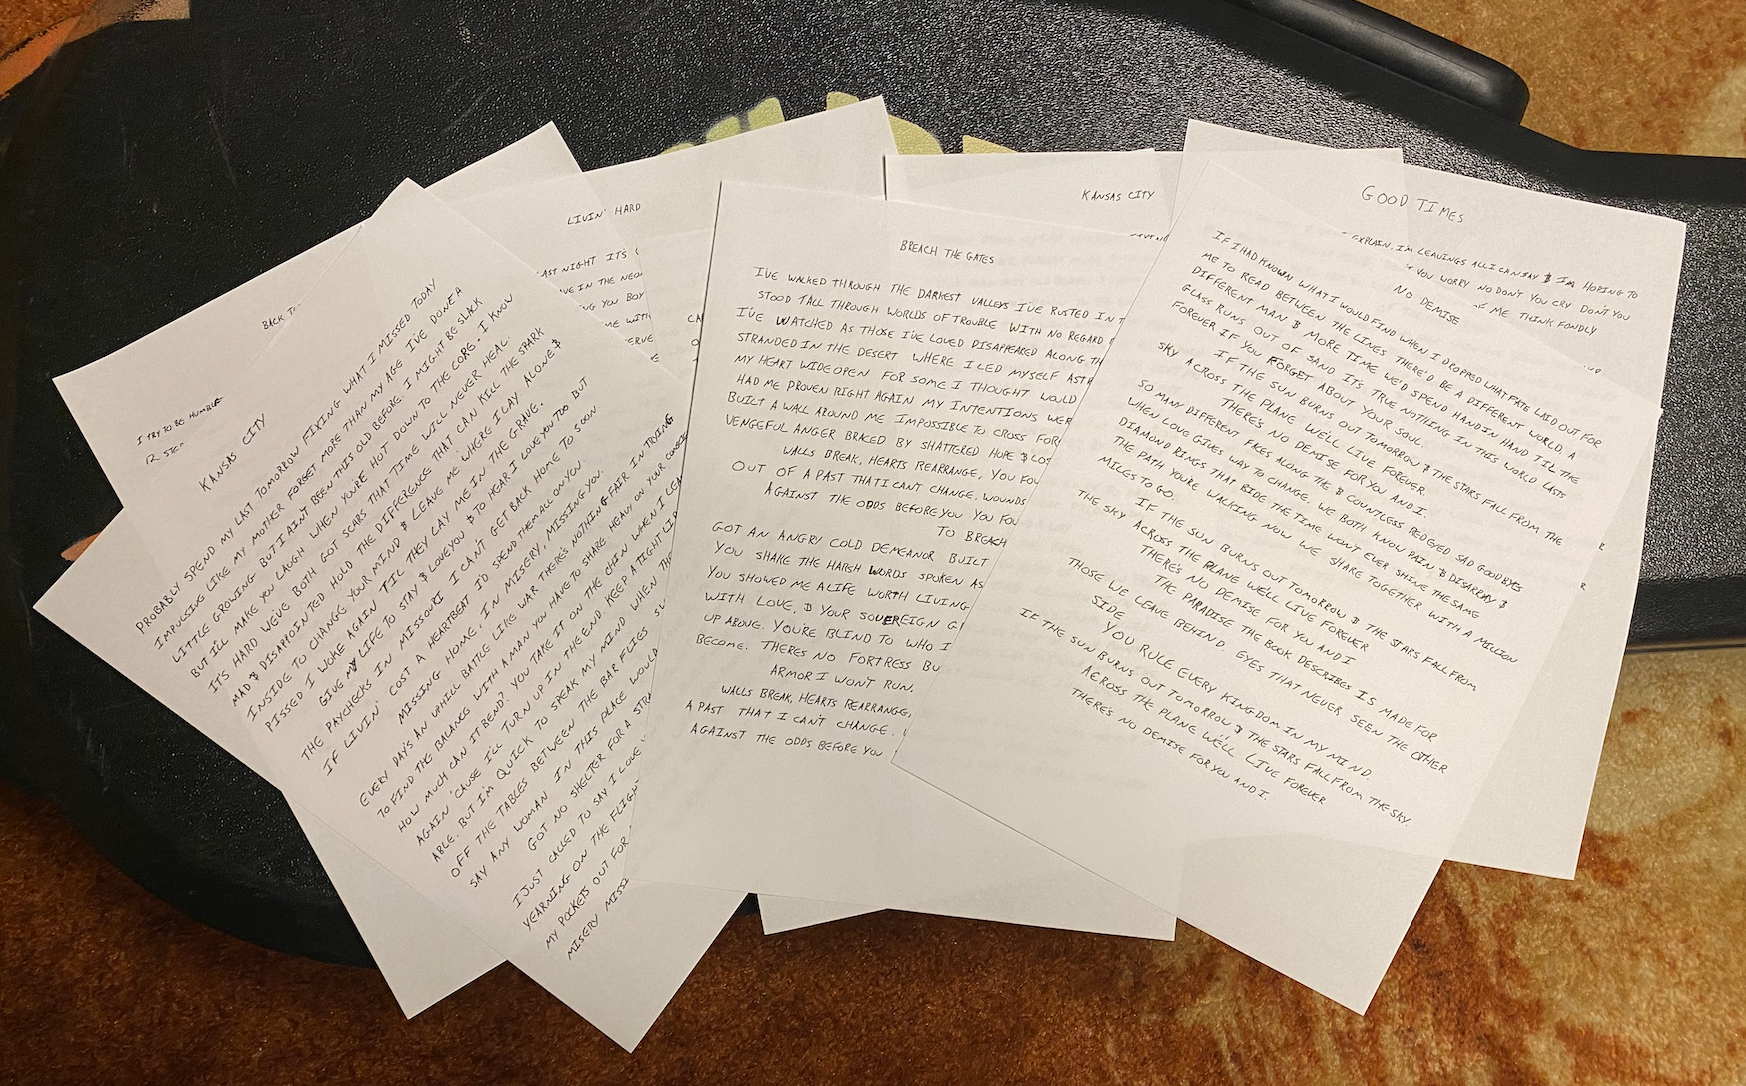 BACK T
I TRY TO BE HUMBLE
12 STEP
KANSAS CITY
PROBABLY SPEND MY LAST TOMORROW FIXING WHAT I MISSED TODAY
IMPULSING LIKE MY MOTHER FORGET MORE THAN MY AGE I'VE DONE A
LITTLE GROWING BUT I AIN'T BEEN THIS OLD BEFORE. I MIGHT BE SLACK
BUT ILL MAKE YOU LAUGH WHEN YOU'RE HOT DOWN TO THE CORE. I KNOW
IT'S HARD WE'VE BOTH GOT SCARS THAT TIME WILL NEVER HEAL.
MAD & DISAPPOINTED HOLD THE DIFFERENCE THAT CAN KILL THE SPARK
INSIDE TO CHANGE YOUR MIND & LEAVE ME WHERE I LAY ALONE &
PISSED I WOKE AGAIN TIL THEY LAY ME IN THE GRAVE.
GIVE MY LIFE TO STAY & LOVE YOU & TO HEAR I LOVE YOU TOO BUT
THE PAYCHECKS IN MISSOURI I CAN'T GET BACK HOME TO SOON
IF LIVIN' COST A HEARTBEAT I'D SPEND THEM ALL ON YOU
MISSING HOME, IN MISERY, MISSING YOU.
EVERY DAY'S AN UPHILL BATTLE LIKE WAR THERE'S NOTHING FAIR IN TRYING
TO FIND THE BALANCE WITH A MAN YOU HAVE TO SHARE HEAVY ON YOUR
HOW MUCH CAN IT BEND? YOU TAKE IT ON THE CHIN WHEN I LEA
AGAIN 'CAUSE I'LL TURN UP IN THE END. KEEP A TIGHT LIP
ABLE. BUT I'M QUICK TO SPEAK MY MIND WHEN THE
OFF THE TABLES BETWEEN THE BAR FLIES
SAY ANY WOMAN IN THIS PLACE WOULD
GOT NO SHELTER FOR A STRA
I JUST CALLED TO SAY I LOVE
YEARNING ON THE FLIGH
MY POCKETS OUT FOR
MISERY MISSI
LIVIN' HARD
LAST NIGHT IT'S
IVE IN THE NEO
NG YOU BOY
ME WITH
ERVE
BREACH THE GATES
I'VE WALKED THROUGH THE DARKEST VALLEYS I'VE RUSTED IN T
STOOD TALL THROUGH WORLDS OF TROUBLE WITH NO REGARD
I'VE WATCHED AS THOSE I'VE LOVED DISAPPEARED ALONG TH
STRANDED IN THE DESERT WHERE I LED MYSELF ASTR
MY HEART WIDE OPEN FOR SOME I THOUGHT WOULD
HAD ME PROVEN RIGHT AGAIN MY INTENTIONS WER
BUILT A WALL AROUND ME IMPOSSIBLE TO CROSS FOR
VENGEFUL ANGER BRACED BY SHATTERED HOPE & LOS
WALLS BREAK, HEARTS REARRANGE, YOU FOU
OUT OF A PAST THAT I CAN'T CHANGE, WOUNDS
AGAINST THE ODDS BEFORE YOU YOU FOU
TO BREACH
GOT AN ANGRY COLD DEMEANOR BUILT
YOU SHAKE THE HARSH WORDS SPOKEN AS
YOU SHOWED ME A LIFE WORTH LIVING
WITH LOVE, & YOUR SOVEREIGN G
UP ABOVE. YOU'RE BLIND TO WHO I
BECOME. THERES NO FORTRESS BU
ARMOR I WON'T RUN.
WALLS BREAK, HEARTS REARRANGE,
A PAST THAT I CAN'T CHANGE.
AGAINST THE ODDS BEFORE YOU
KANSAS CITY
GOOD TIMES
EXPLAIN. I'M LEAVINGS ALL I CAN SAY & I'M HOPING TO
YOU WORRY NO DON'T YOU CRY DON'T YOU
ME THINK FONDLY
NO DEMISE
IF I HAD KNOWN WHAT I WOULD FIND WHEN I DROPPED WHAT FATE LAID OUT FOR
ME TO READ BETWEEN THE LINES THERE'D BE A DIFFERENT WORLD, A
DIFFERENT MAN & MORE TIME WE'D SPEND HAND IN HAND TIL THE
GLASS RUNS OUT OF SAND ITS TRUE NOTHING IN THIS WORLD LASTS
FOREVER IF YOU FORGET ABOUT YOUR SOUL.
IF THE SUN BURNS OUT TOMORROW & THE STARS FALL FROM THE
SKY ACROSS THE PLANE WE'LL LIVE FOREVER
THERE'S NO DEMISE FOR YOU AND I.
SO MANY DIFFERENT FACES ALONG THE & COUNTLESS RED EYED SAD GOODBYES
WHEN LOVE GIVES WAY TO CHANGE. WE BOTH KNOW PAIN & DISARRAY &
DIAMOND RINGS THAT BIDE THE TIME WON'T EVER SHINE THE SAME
THE PATH YOU'RE WALKING NOW WE SHARE TOGETHER WITH A MILLION
MILES TO GO.
IF THE SUN BURNS OUT TOMORROW & THE STARS FALL FROM
THE SKY ACROSS THE PLANE WE'LL LIVE FOREVER
THERE'S NO DEMISE FOR YOU AND I
THE PARADISE THE BOOK DESCRIBES IS MADE FOR
THOSE WE LEAVE BEHIND. EYES THAT NEVER SEEN THE OTHER
SIDE
YOU RULE EVERY KINGDOM IN MY MIND.
IF THE SUN BURNS OUT TOMORROW & THE STARS FALL FROM THE SKY.
ACROSS THE PLANE WE'LL LIVE FOREVER
THERE'S NO DEMISE FOR YOU AND I.